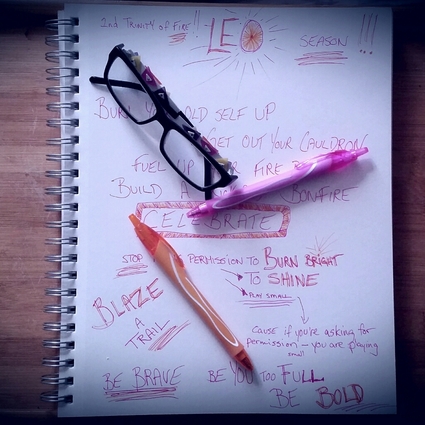 2nd Trinity of Fire!!
LEO
SEASON !!!
Burn your old self up
Get out your cauldron
Fuel up fire
Build a Bonfire
CELEBRATE
Stop permission to Burn bright
to shine
play small
BLAZE
A
TRAIL
cause if you're asking for
permission – you are playing
small
BE BRAVE BE YOU too FULL
BE BOLD